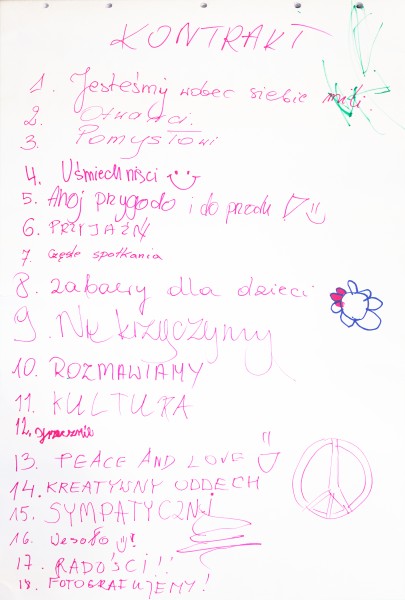 KONTRAKT
1. Jesteśmy wobec siebie mili.
2. Otwarci.
3. Pomysłowi
4. Uśmiechniści
5. Ahoj przygodo i do przodu!
6. PRZYJAŹŃ
7. Częste spotkania
8. zabawy dla dzieci
9. Nie krzyczymy
10. ROZMAWIAMY
11. KULTURA
12.
13. PEACE AND LOVE
14. KREATYWNY ODDECH
15. SYMPATYCZNI
16. Wesoło
17. RADOŚCI!!
18. FOTOGRAFUJEMY!